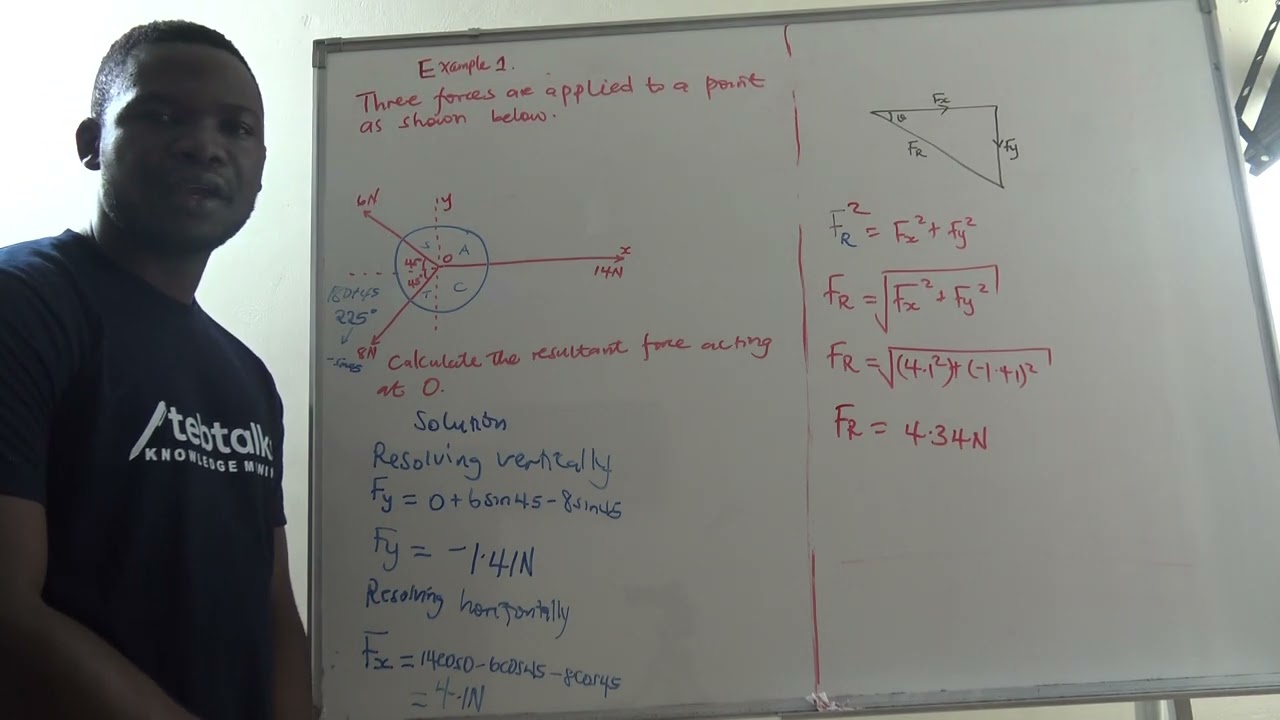 Example 1.
Three forces are applied to a point
as shown below.
6N
y
S
A
45°
O
x
14N
45°
T
C
180+45
225°
8N
Calculate the resultant force acting
at O.
Solution
Resolving vertically
Fy = 0+6sin45-8sin45
Fy = -1.41N
Resolving horizontally
Fx = 14cos0-6cos45-8cos45
= 4.1N
Fx
θ
FR
Fy
FR² = Fx²+Fy²
FR = √Fx²+Fy²
FR = √(4.1²)+(-1.41)²
FR = 4.34N
KNOWLEDGE